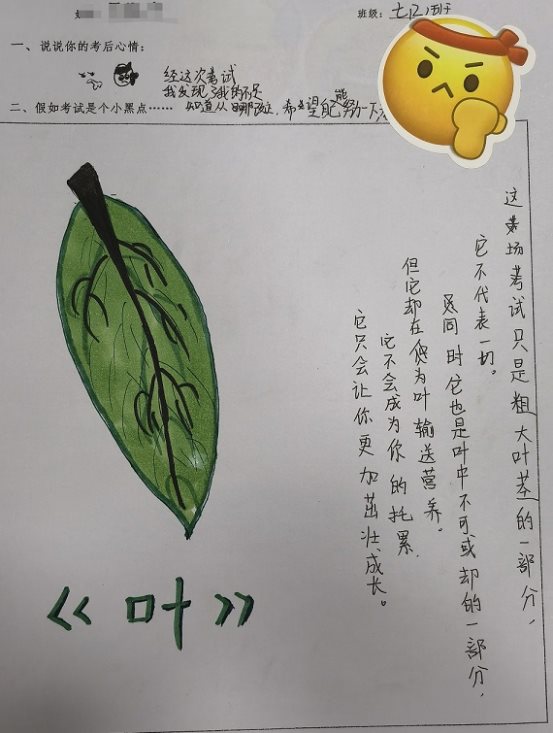 班级：七（2）班
一、说说你的考后心情：
经这次考试
我发现了我的不足
知道从哪改，希望能努力一下
二、假如考试是个小黑点……
这场考试只是粗大叶茎的一部分，
它不代表一切。
同时它也是叶中不可或却的一部分，
但它却在为叶输送营养。
它不会成为你的托累，
它只会让你更加茁壮成长。
《叶》